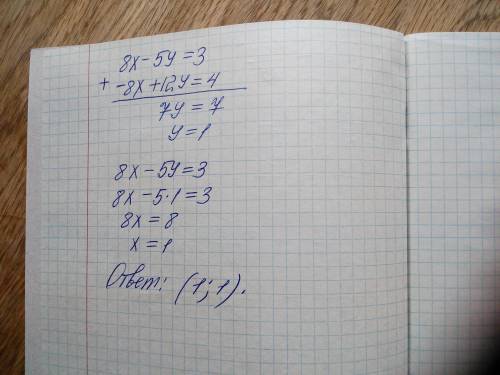 8x - 5y = 3
+ -8x + 12y = 4
7y = 7
y = 1
8x - 5y = 3
8x - 5·1 = 3
8x = 8
x = 1
Ответ: (1; 1).